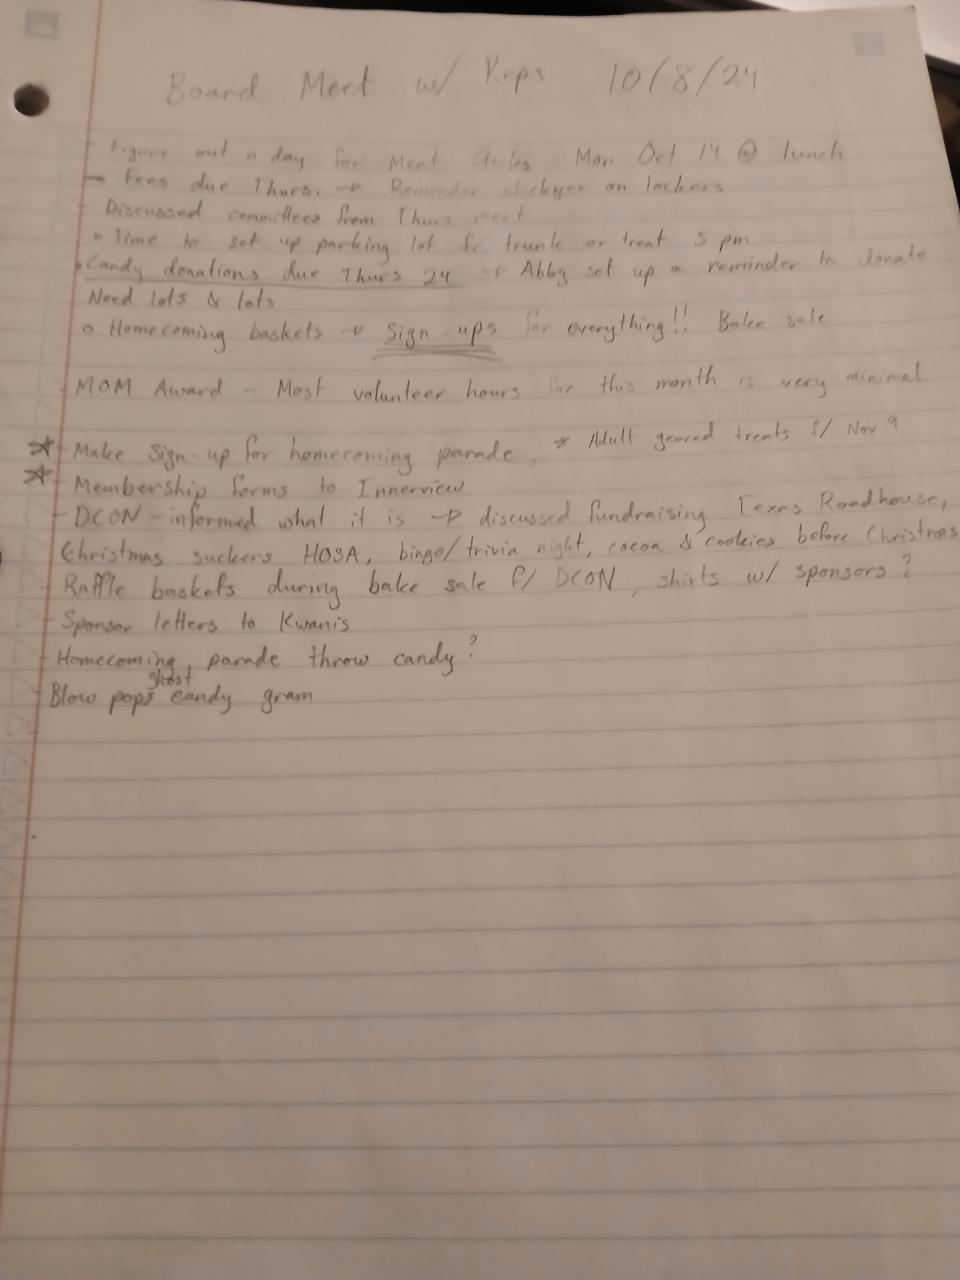 Board Meet w/ Reps 10/8/24
- Figure out a day for Meat Sticks Mon Oct 14 @ lunch
→ Fees due Thurs. → Reminder stickyes on lockers
Discussed committees from Thurs meet
• Time to set up parking lot f/ trunk or treat 5 pm
• Candy donations due Thurs 24 → Abby set up a reminder to donate
Need lots & lots
• Homecoming baskets → Sign-ups for everything!! Bake sale
- MOM Award - Most volunteer hours for this month is very minimal
* - Make Sign-up for homecoming parade, * Adult geared treats f/ Nov 9
* - Membership forms to Innerview
- DCON - informed what it is → discussed fundraising Texas Roadhouse,
Christmas suckers HOSA, bingo/trivia night, cocoa & cookies before Christmas
Raffle baskets during bake sale f/ DCON, shirts w/ sponsors?
- Sponsor letters to Kwanis
- Homecoming parade throw candy?
- Blow pops ghost candy gram